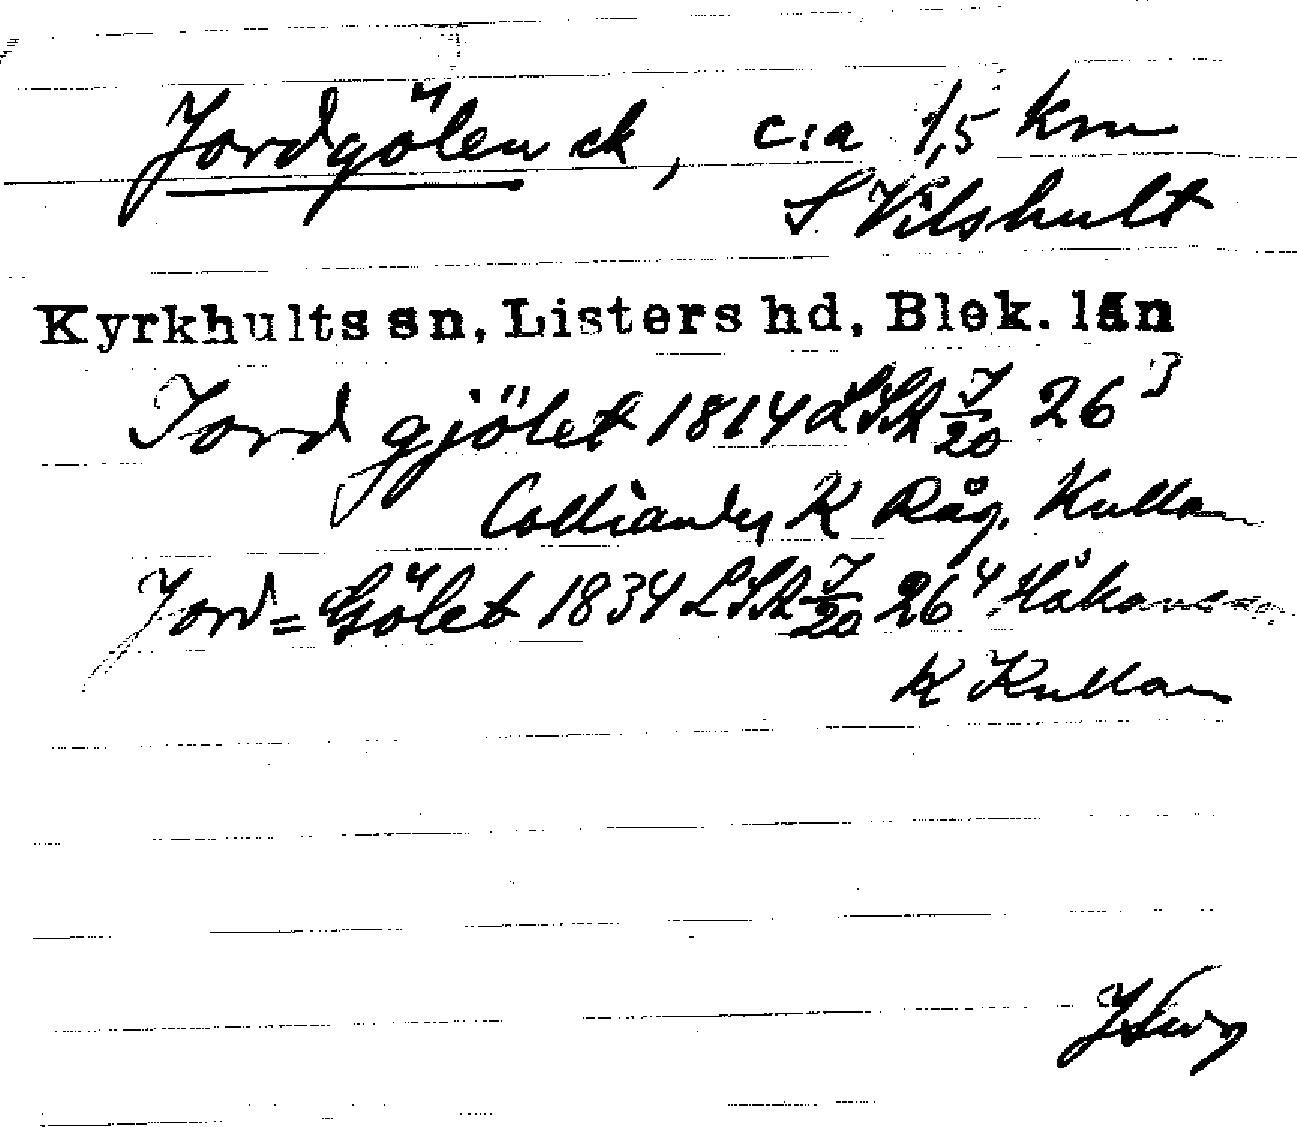 Jordgölen ck, c:a 1,5 km
S Vilshult
Kyrkhults sn, Listers hd, Blek. län
Jord gjölet 1814 LSA J/20 26³
Colliander K Råg. Kullan
Jord=Gölet 1834 LSA J/20 26⁴ Håkansson
K Kullan